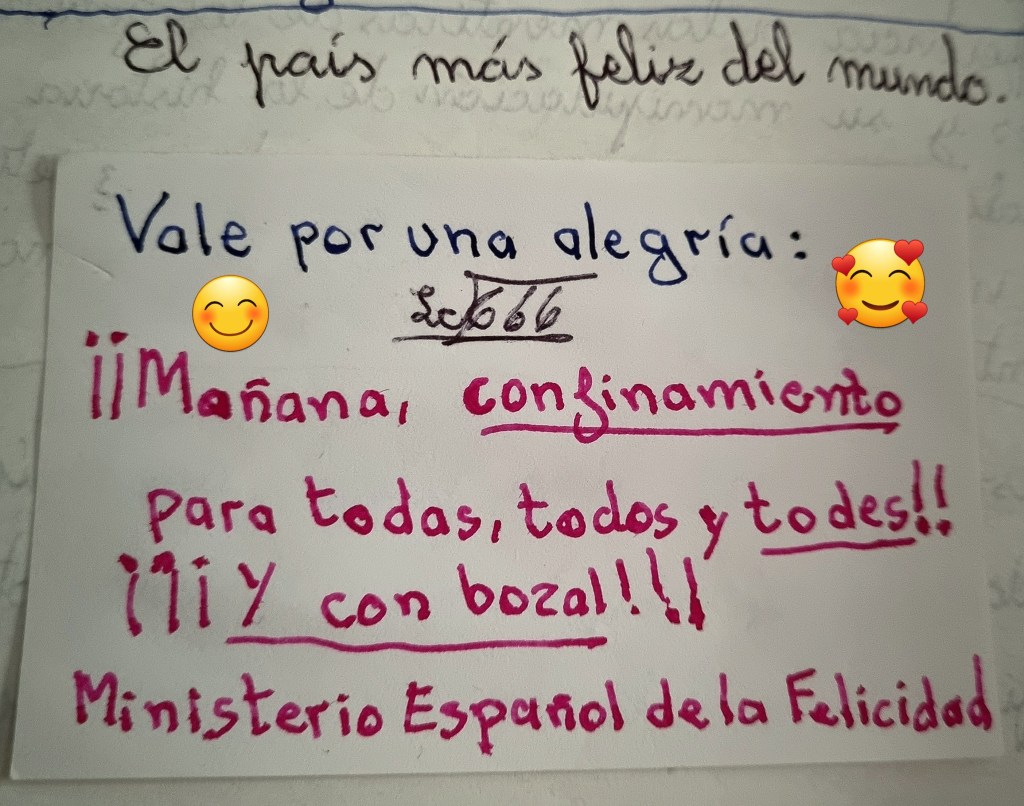 El país más feliz del mundo.
Vale por una alegría:
666
¡¡Mañana, confinamiento
para todas, todos y todes!!
¡¡¡Y con bozal!!!
Ministerio Español de la Felicidad